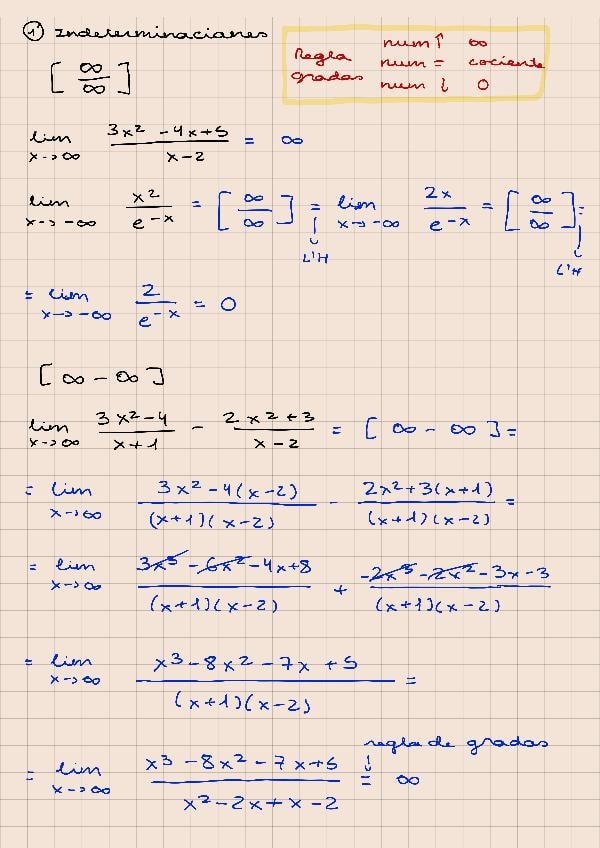 1º Indeterminaciones
[∞/∞]
Regla grados
num ↑ ∞
num = cociente
num ↓ 0
lim x→∞ (3x² - 4x + 5)/(x - 2) = ∞
lim x→-∞ x²/e^-x = [∞/∞] = lim x→-∞ 2x/e^-x = [∞/∞] =
↓ L'H ↓ L'H
= lim x→-∞ 2/e^-x = 0
[∞ - ∞]
lim x→∞ (3x² - 4)/(x + 1) - (2x² + 3)/(x - 2) = [∞ - ∞] =
= lim x→∞ 3x² - 4(x - 2)/(x + 1)(x - 2) - 2x² + 3(x + 1)/(x + 1)(x - 2) =
= lim x→∞ 3x³ - 6x² - 4x + 8/(x + 1)(x - 2) + -2x³ - 2x² - 3x - 3/(x + 1)(x - 2)
= lim x→∞ x³ - 8x² - 7x + 5/(x + 1)(x - 2) =
regla de grados
↓
= lim x→∞ x³ - 8x² - 7x + 5/x² - 2x + x - 2 = ∞